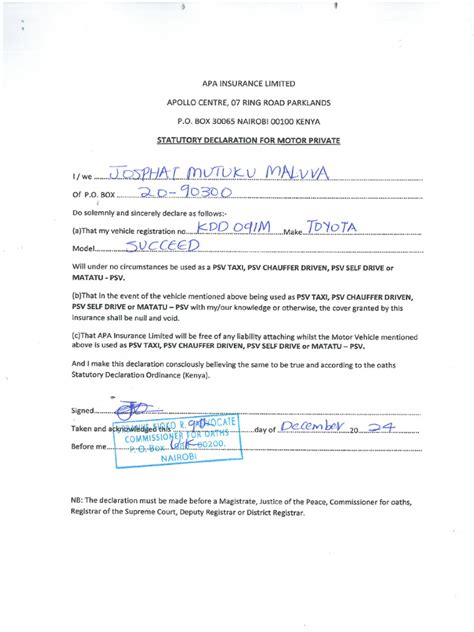 APA INSURANCE LIMITED
APOLLO CENTRE, 07 RING ROAD PARKLANDS
P.O. BOX 30065 NAIROBI 00100 KENYA
STATUTORY DECLARATION FOR MOTOR PRIVATE
I / we JOSPHAT MUTUKU MALUVA
Of P.O. BOX 20-90300
Do solemnly and sincerely declare as follows:-
(a)That my vehicle registration no. KDD 091M Make TOYOTA
Model SUCCEED
Will under no circumstances be used as a PSV TAXI, PSV CHAUFFER DRIVEN, PSV SELF DRIVE or
MATATU - PSV.
(b)That in the event of the vehicle mentioned above being used as PSV TAXI, PSV CHAUFFER DRIVEN,
PSV SELF DRIVE or MATATU – PSV with my/our knowledge or otherwise, the cover granted by this
insurance shall be null and void.
(c)That APA Insurance Limited will be free of any liability attaching whilst the Motor Vehicle mentioned
above is used as PSV TAXI, PSV CHAUFFER DRIVEN, PSV SELF DRIVE or MATATU – PSV.
And I make this declaration consciously believing the same to be true and according to the oaths
Statutory Declaration Ordinance (Kenya).
Signed
Taken and acknowledged this day of December 20 24
ADVOCATE
COMMISSIONER FOR OATHS
Before me P. O. Box 00200,
NAIROBI
NB: The declaration must be made before a Magistrate, Justice of the Peace, Commissioner for oaths,
Registrar of the Supreme Court, Deputy Registrar or District Registrar.